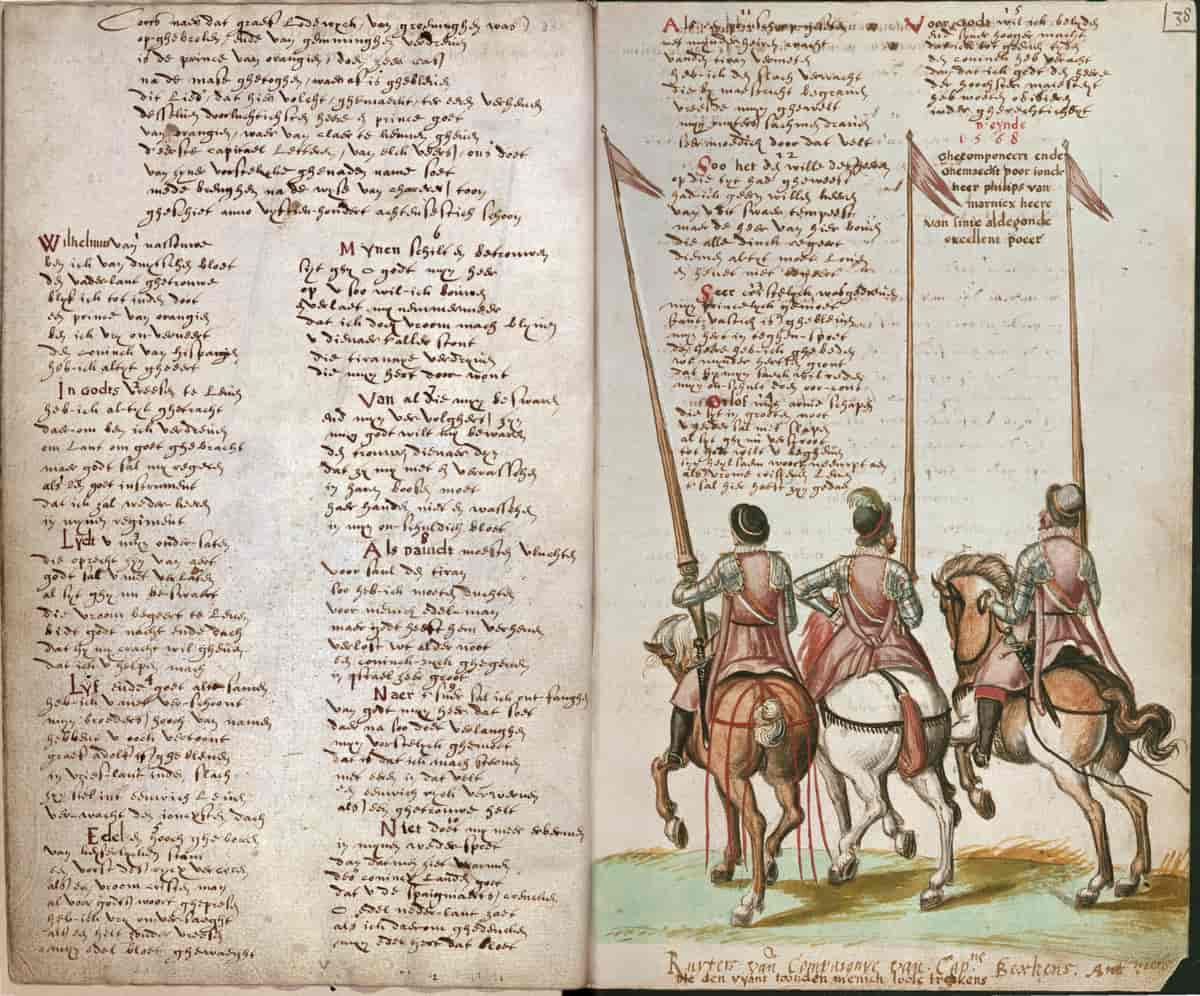 Corts naer dat graef Lodewyck, van groeninghen was
op ghebroken, ende van gemminghen verdreven
is de prince van orangien, doen zeer ras
na de mase ghetoghen, waer af is ghebleven
dit Liedt, dat hier volcht, ghemaeckt, ter eeren verheven
desselven doorluchtichsten heere en prince goet
van orangien, waer van claer te kennen gheven
d'eerste capitael Letteren, van elck veers, ons doet
van zyne vorstelyke ghenaden name soet
mede brenghen na de wyse van charters toon
gheschiet anno vyfthien hondert achtensestich schoon
Wilhelmus van nassouwe
ben ick van duytschen bloet
den vaderlant ghetrouwe
blyf ick tot inden doot
een prince van orangien
ben ick vry onverveert
den coninck van hispangien
heb ick altyt gheeert
In godes vreesen te Leven
heb ick altyt ghetracht
daerom ben ick verdreven
om Lant om goet ghebracht
maer godt sal my regeren
als een goet instrument
dat ick zal weder keeren
in mynen regiment
Lydt u myn ondersaten
die oprecht zyn van aert
godt sal u niet verlaten
al syt ghy nu beswaert
die vroom begeert te Leven
bidt godt nacht ende dach
dat hy my cracht wil gheven
dat ick u helpen mach
4
Lyf ende goet al te samen
heb ick u niet verschoont
myn broeders hooch van namen
hebbent u ooch vertoont
graef adolf is ghebleven
in vrieslant inden slach
zyn siel int eewich Leven
verwacht den joncxsten dach
5
Edel en hooch gheboren
van keyserlycken stam
een vorst des rycx vercoren
als een vroom cristen man
al voor godts woort ghepresen
heb ick vry onversaeght
als een helt zonder vreesen
myn edel bloet ghewaeght
6
Mynen schilt en betrouwen
syt ghy o godt myn heer
op u soo wil ick bouwen
verlaet my nemmermeer
dat ick doch vroom mach blyven
u dienaer t'aller stont
die tirannye verdryven
die my myn hert doorwont
7
Van al die my beswaren
end myn vervolghers zyn
myn godt wilt my bewaren
den trouwen dienaer dyn
dat zy my niet en verrasschen
in haren boosen moet
haer handen niet en wasschen
in myn onschuldich bloet
8
Als Davidt moesten vluchten
voor saul den tiran
soo heb ick moeten duchten
voor menich edelman
maer godt heeft hem verheven
verlost wt alder noot
een coninckryck ghegeven
in Israel heel groot
9
Naer t'suer sal ick ontfanghen
van godt myn heer dat soet
daer na soo doet verlanghen
myn vorstelyck ghemoet
dat is dat ick mach sterven
met eeren in dat velt
een eeuwich ryck verwerven
als een ghetrouwe helt
10
Niet doet my meer erbermen
in mynen wederspoet
dan datmen siet verarmen
des conincx Landen goet
dat u de spaignaerts crencken
o edel nederlant zoet
als ick daerom ghedencke
myn edel hert dat bloet
38
11
Als een prins op geseten
met mynder heiren cracht
vanden tiran vermeten
heb ick den slach verwacht
die by maestricht begraven
vreesde myn ghewelt
myn ruyters sachmen draven
seer moedich door dat velt
12
Soo het den wille des heren
op die tyt had gheweest
had ick geern willen keeren
van u dit swaer tempeest
maer de heer van hier boven
die alle dinck regeert
diemen altyt moet Loven
en heuet niet begeert
Seer cristelyck was gedreven
myn princelyck ghemoet
stantvastich is ghebleven
myn hert in teghenspoet
den heere heb ick ghebeden
wt mynder herten gront
dat hy myn saeck wil reden
myn onschult doen oorcont
Orlof myn arme schapen
die zyt in grooten noot
u herder sal niet slapen
al zyt ghy nu verstroyt
tot godt wilt u begheven
zyn heylsaem woort neempt aen
als vrome cristen Leven
t'sal hier haest zyn gedaen
15
Voor godt wil ick belyden
end syner hooger macht
dat ick tot geenen tyden
den coninck heb veracht
dan dat ick godt den heere
der hoochster maiesteyt
heb moeten obidieren
inder gherechticheyt
D'eynde
1568
Ghecomponeert ende
Ghemaeckt door jonck
heer philips van
marnicx heere
van sinte aldegonde
excellent poeet
Ruyters van Compaignye van Cap:ne Berkens.
die den vyant wonden menich loose treckens